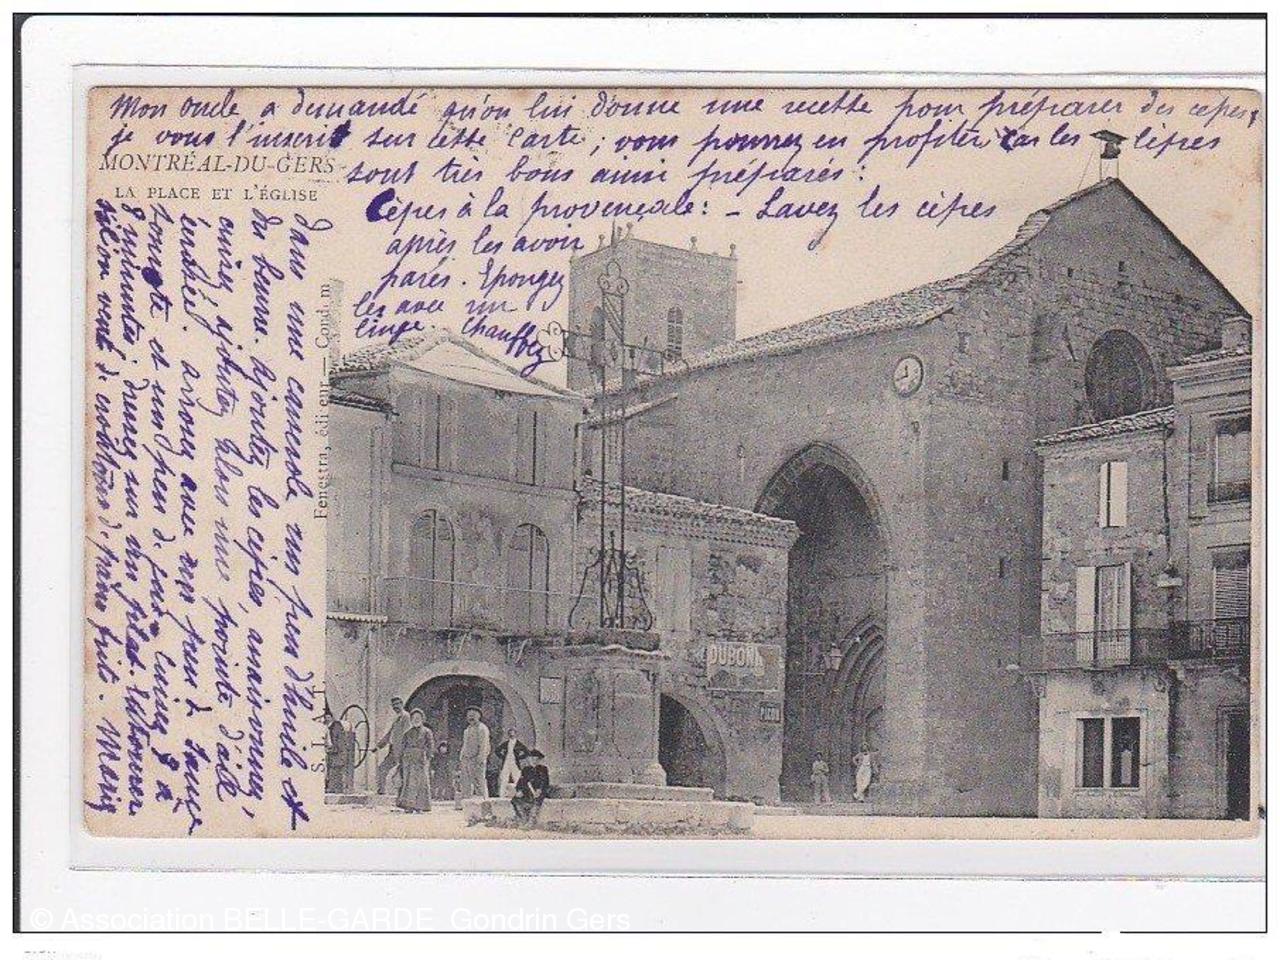 Mon oncle a demandé qu'on lui donne une recette pour préparer des cèpes,
je vous l'inscrit sur cette carte ; vous pourrez en profiter, car les cèpes
sont très bons ainsi préparés :
MONTRÉAL-DU-GERS
LA PLACE ET L'ÉGLISE
Cèpes à la provençale : - Lavez les cèpes
après les avoir
parés. Epongez
les avec un
linge. Chauffez
dans une casserole un peu d'huile et
du beurre. Ajoutez les cèpes, assaisonnez,
cuirez, ajoutez alors une pointe d'ail
écrasée. arrosez avec un peu de sauce
tomate et un peu de jus. Cuisez 8 à
minutes; dressez sur un plat. Entourer
si l'on veut de croûtons de pain frits. Maria
Fenestra, éditeur — Condom
S. L. A. T.
DUBON
© Association BELLE-GARDE Gondrin Gers